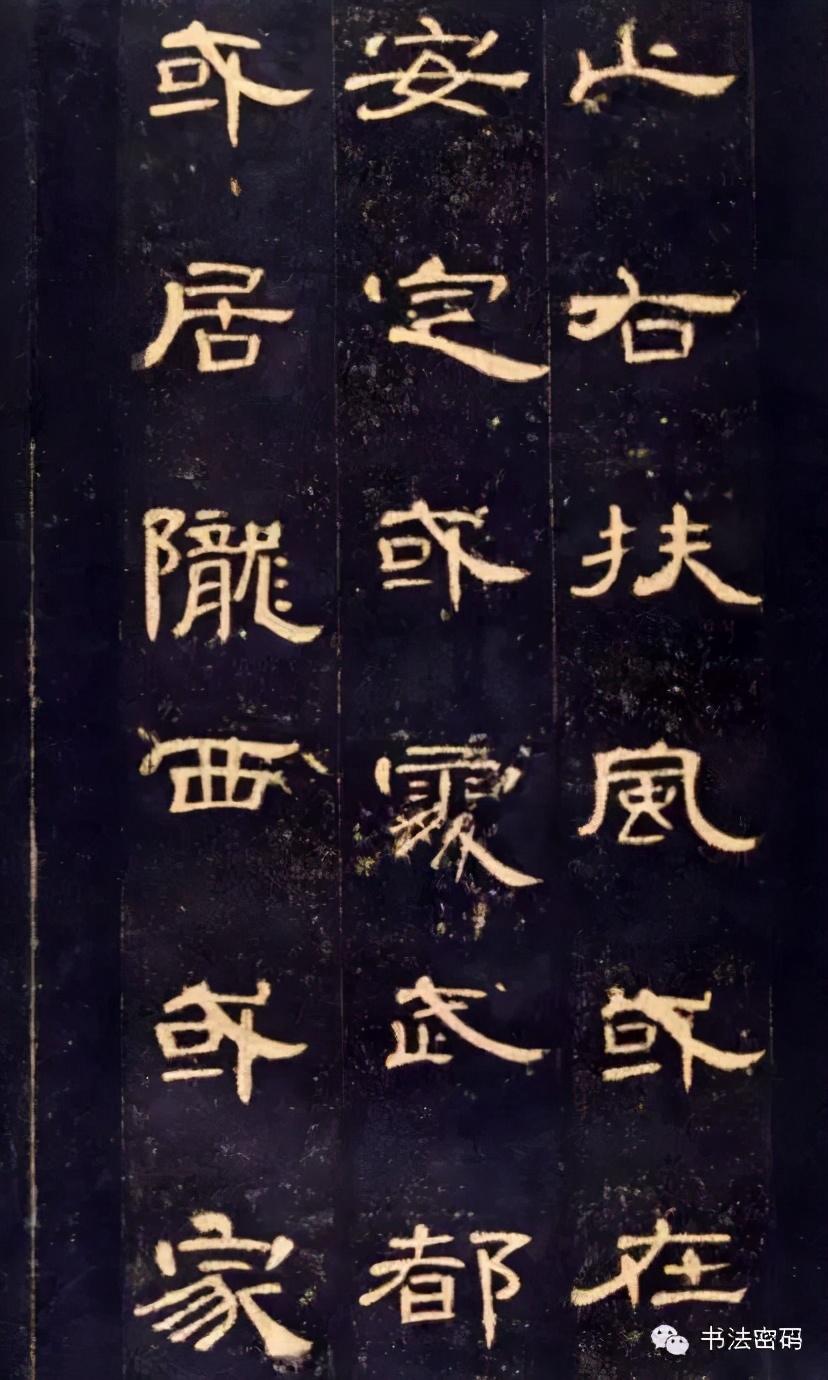 止右扶風或在
安定或處武都
或居隴西或家
书法密码